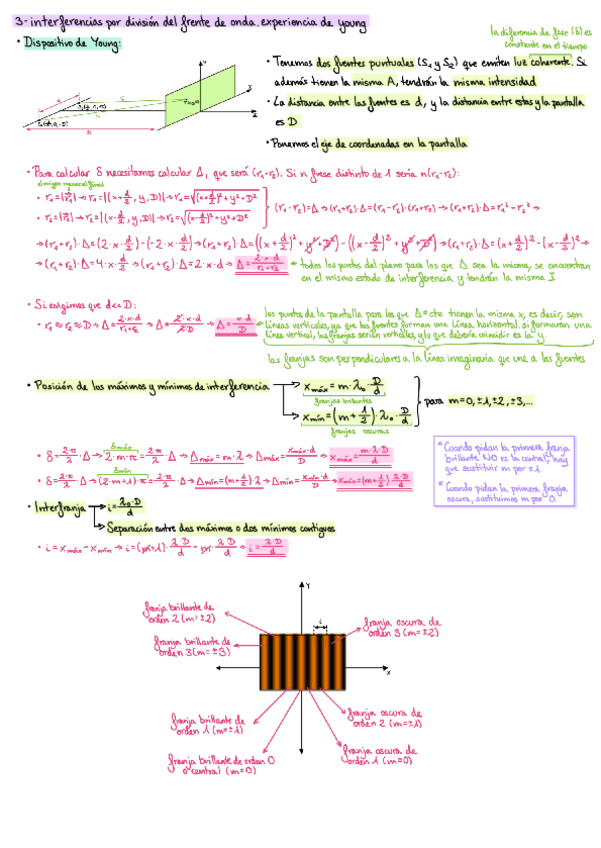 3-interferencias por división del frente de onda. experiencia de young
la diferencia de fase (δ) es
constante en el tiempo
• Dispositivo de Young:
• Tenemos dos fuentes puntuales (S₁ y S₂) que emiten luz coherente. Si
además tienen la misma A, tendrán la misma intensidad
• La distancia entre las fuentes es d, y la distancia entre estas y la pantalla
es D
• Ponemos el eje de coordenadas en la pantalla
• Para calcular δ necesitamos calcular Δ, que será (r₁-r₂). Si n fuese distinto de 1 sería n(r₁-r₂):
• r₁=|r₁|→r₁=|(x+d/2, y, D)|→r₁=√((x+d/2)²+y²+D²)
• r₂=|r₂|→r₂=|(x-d/2, y, D)|→r₂=√((x-d/2)²+y²+D²)
(r₁-r₂)=Δ→(r₁+r₂)·Δ=(r₁-r₂)·(r₁+r₂)→(r₁+r₂)·Δ=r₁²-r₂²→
→(r₁+r₂)·Δ=(2·x·d/2)-(-2·x·d/2)→(r₁+r₂)·Δ=((x+d/2)²+y²+D²)-((x-d/2)²+y²+D²)→(r₁+r₂)·Δ=(x+d/2)²-(x-d/2)²→
→(r₁+r₂)·Δ=4·x·d/2→(r₁+r₂)·Δ=2·x·d→Δ=2·x·d/(r₁+r₂)
todos los puntos del plano para los que Δ sea la misma, se encuentran
en el mismo estado de interferencia y tendrán la misma I
• Si exigimos que d<<D:
• r₁≈r₂≈D→Δ=2·x·d/(r₁+r₂)→Δ=2·x·d/(2·D)→Δ=x·d/D
los puntos de la pantalla para los que Δ=cte tienen la misma x, es decir, son
líneas verticales, ya que las fuentes forman una línea horizontal. si formaran una
línea vertical, las franjas serían verticales, y lo que debería coincidir es la y
las franjas son perpendiculares a la línea imaginaria que une a las fuentes
• Posición de los máximos y mínimos de interferencia
x máx=m·λ₀·D/d
franjas brillantes
x mín=(m+1/2)·λ₀·D/d
franjas oscuras
para m=0,±1,±2,±3,...
• δ=2·π/λ·Δ→2·m·π=2·π/λ·Δ→Δmáx=m·λ→Δmáx=xmáx·d/D→xmáx=m·λ·D/d
δmáx
• δ=2·π/λ·Δ→(2·m+1)·π=2·π/λ·Δ→Δmín=(m+1/2)·λ→Δmín=xmín·d/D→xmín=(m+1/2)·λ·D/d
δmín
* Cuando pidan la primera franja
brillante NO es la central, hay
que sustituir m por ±1.
* Cuando pidan la primera franja
oscura, sustituimos m por 0.
• Interfranja→i=λ₀·D/d
Separación entre dos máximos o dos mínimos contiguos
• i=xmáx-xmín→i=(m+1)·λ·D/d-m·λ·D/d→i=λ·D/d
Y
i
X
franja brillante de
orden 2 (m=±2)
franja brillante de
orden 3 (m=±3)
franja brillante de
orden 1 (m=±1)
franja brillante de orden 0
o central (m=0)
franja oscura de
orden 3 (m=±2)
franja oscura de
orden 2 (m=±1)
franja oscura de
orden 1 (m=0)